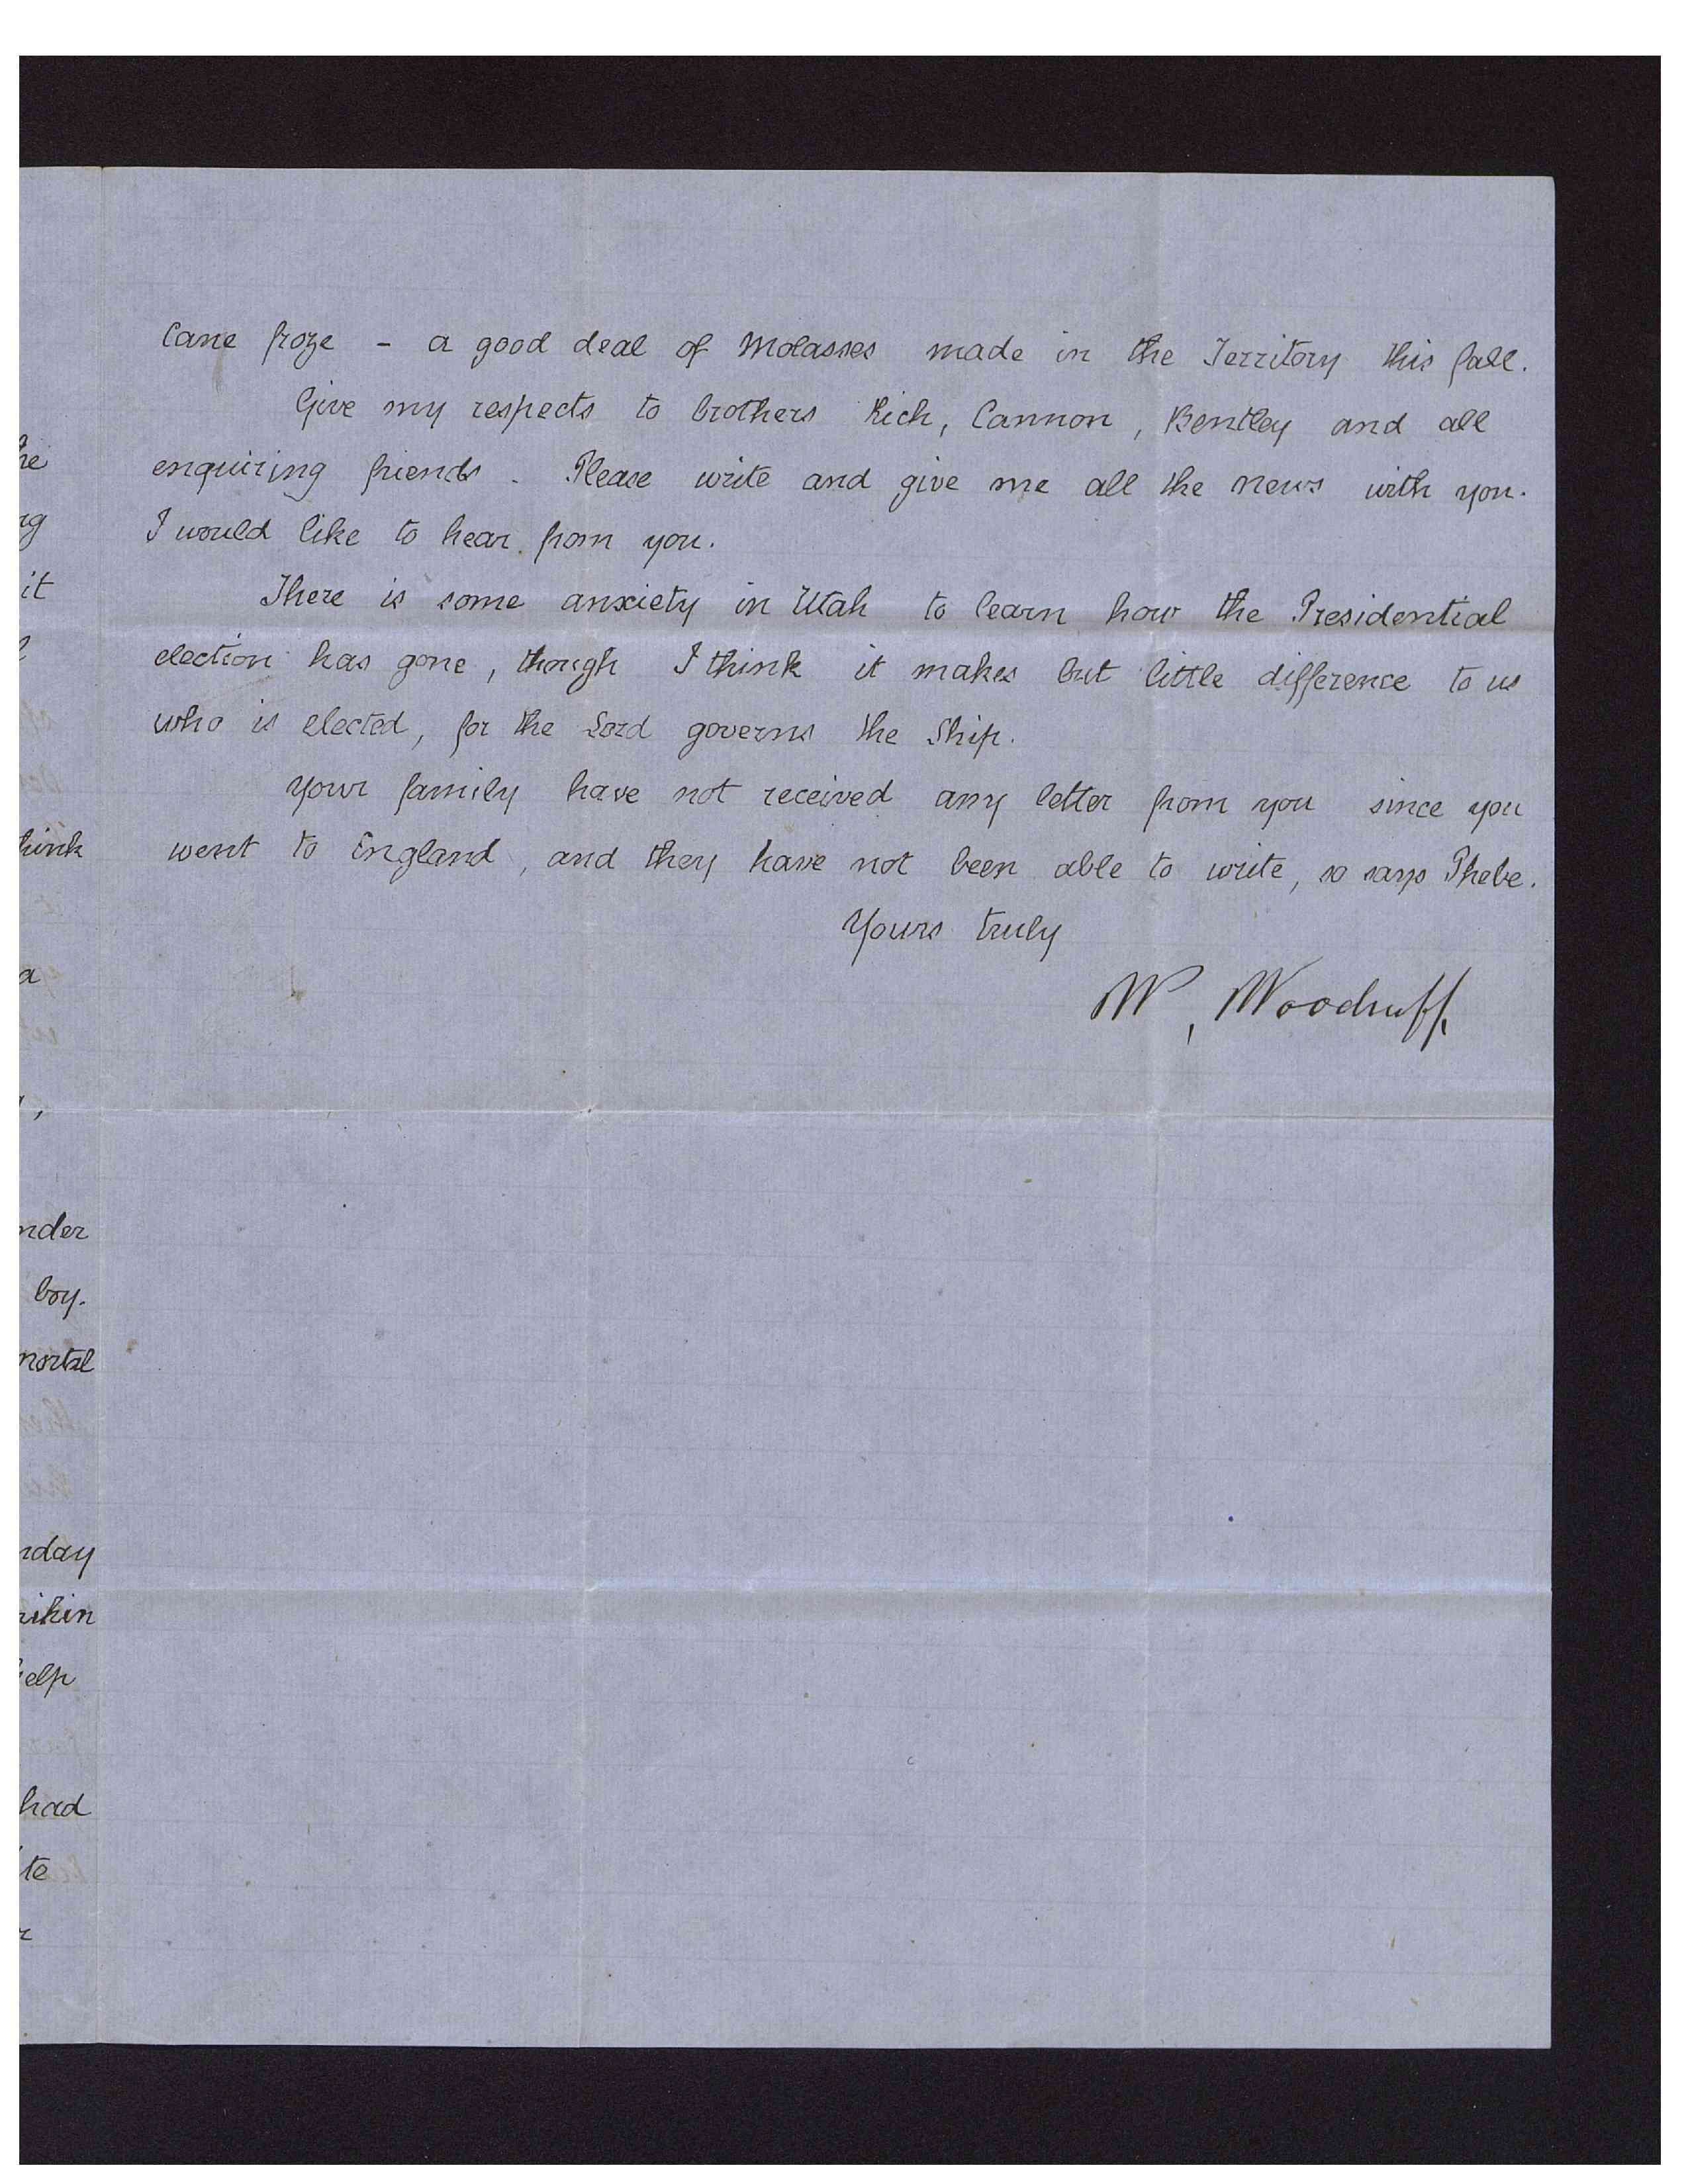 Cane froze - a good deal of Molasses made in the Territory this fall.
Give my respects to brothers Rich, Cannon, Bentley and all
enquiring friends. Please write and give me all the news with you.
I would like to hear from you.
There is some anxiety in Utah to learn how the Presidential
election has gone, though I think it makes but little difference to us
who is elected, for the Lord governs the Ship.
Your family have not received any letter from you since you
went to England, and they have not been able to write, so says Phebe.
Yours truly
W, Woodruff,
he
ng
it
think
a
nder
boy.
mortal
rday
nikin
help
had
te
r